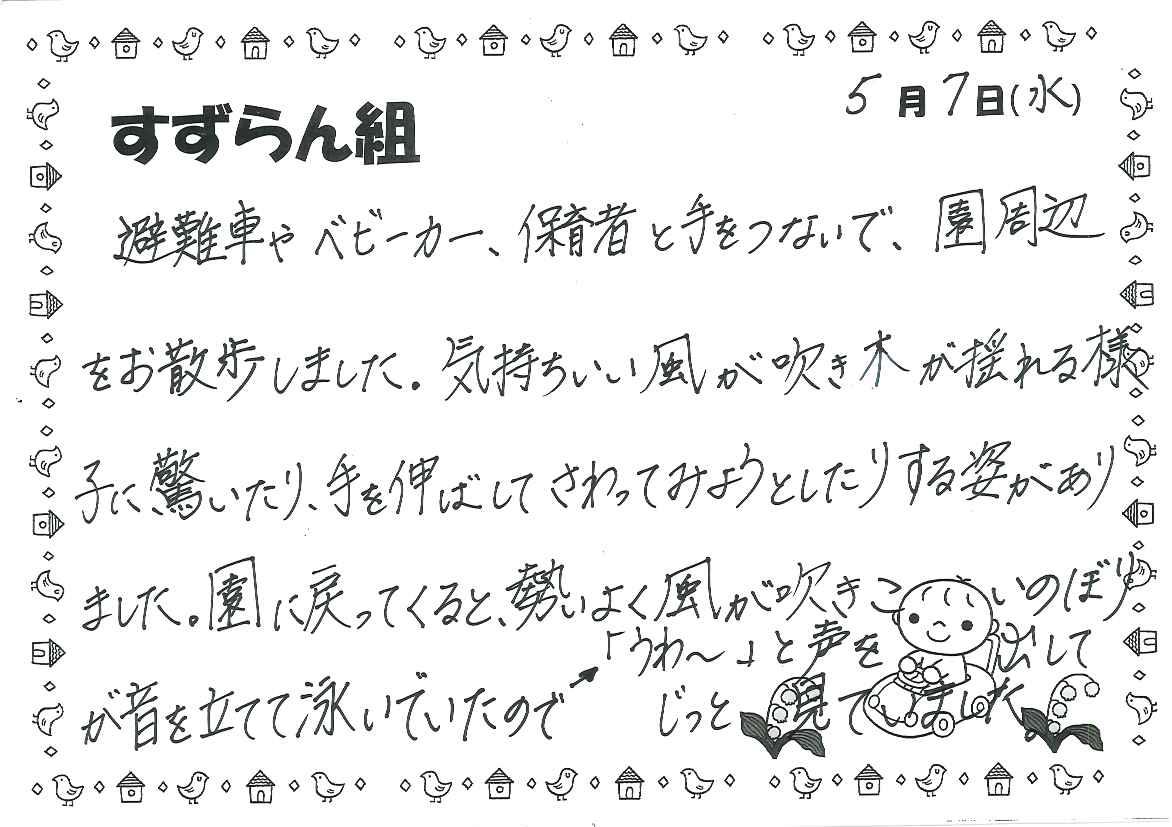 すずらん組
5月7日(水)
避難車やベビーカー、保育者と手をつないで、園周辺
をお散歩しました。気持ちいい風が吹き木が揺れる様
子に驚いたり、手を伸ばしてさわってみようとしたりする姿があり
ました。園に戻ってくると、勢いよく風が吹きこいのぼり
が音を立てて泳いでいたので
「うわ～」と声を出して
じっと見ていました。